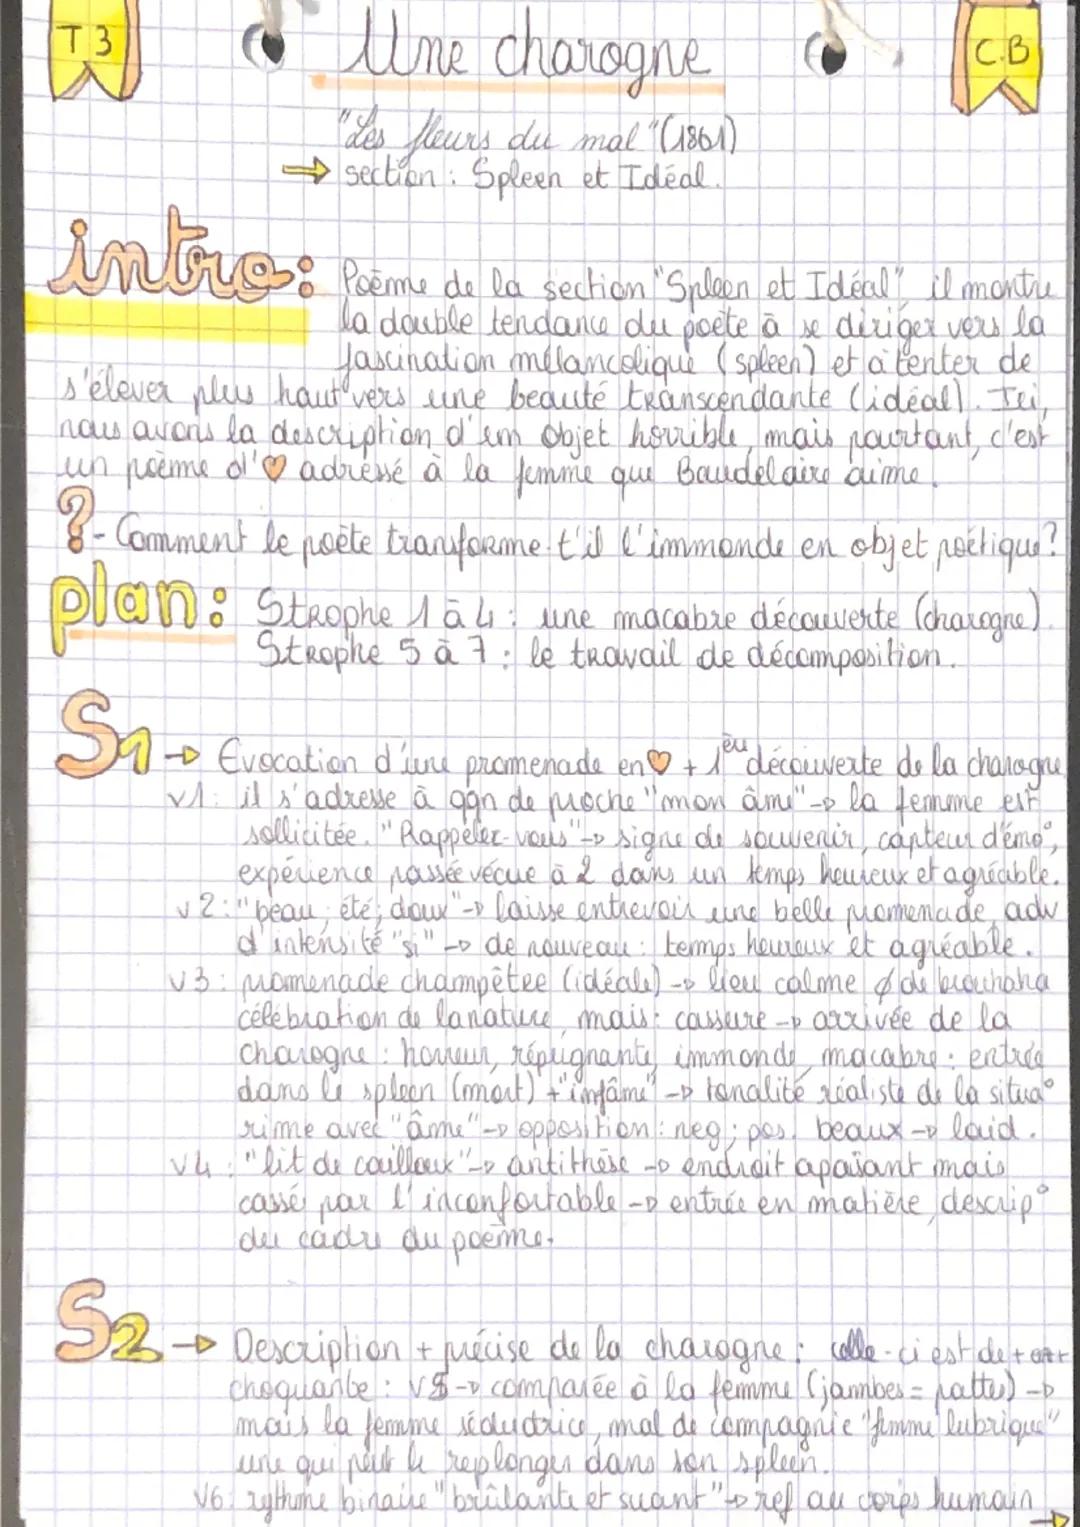 T3
Une charogne
C.B
"Les fleurs du mal" (1861)
→ section : Spleen et Idéal.
intro : Poème de la section "Spleen et Idéal", il montre
la double tendance du poète à se diriger vers la
fascination mélancolique (spleen) et à tenter de
s'élever plus haut vers une beauté transcendante (idéal). Ici,
nous avons la description d'un objet horrible, mais pourtant, c'est
un poème d'♡ adressé à la femme que Baudelaire aime.
? - Comment le poète transforme-t'il l'immonde en objet poétique ?
plan : Strophe 1 à 4 : une macabre découverte (charogne).
Strophe 5 à 7 : le travail de décomposition.
S1 → Evocation d'une promenade en ♡ + 1ère découverte de la charogne
v1 : il s'adresse à qqn de proche "mon âme" → la femme est
sollicitée. "Rappelez-vous" → signe de souvenir, capteur d'émo°,
expérience passée vécue à 2 dans un temps heureux et agréable.
v2 : "beau ; été ; doux" → laisse entrevoir une belle promenade, adv
d'intensité "si" → de nouveau : temps heureux et agréable.
v3 : promenade champêtre (idéale) → lieu calme ∅ de brouhaha
célébration de la nature, mais : cassure → arrivée de la
charogne : horreur, répugnante, immonde, macabre : entrée
dans le spleen (mort) + "infâme" → tonalité réaliste de la situa°
rime avec "âme" → opposition : neg ; pos. beaux → laid.
v4 : "lit de cailloux" → antithèse → endroit apaisant mais
cassé par l'inconfortable → entrée en matière, descrip°
du cadre du poème.
S2 → Description + précise de la charogne ; celle-ci est de + en +
choquante : v5 → comparée à la femme (jambes = pattes) →
mais la femme séductrice, mal de compagnie "femme lubrique"
une qui peut le replonger dans son spleen.
v6 : rythme binaire "brûlante et suant" → ref au corps humain
→